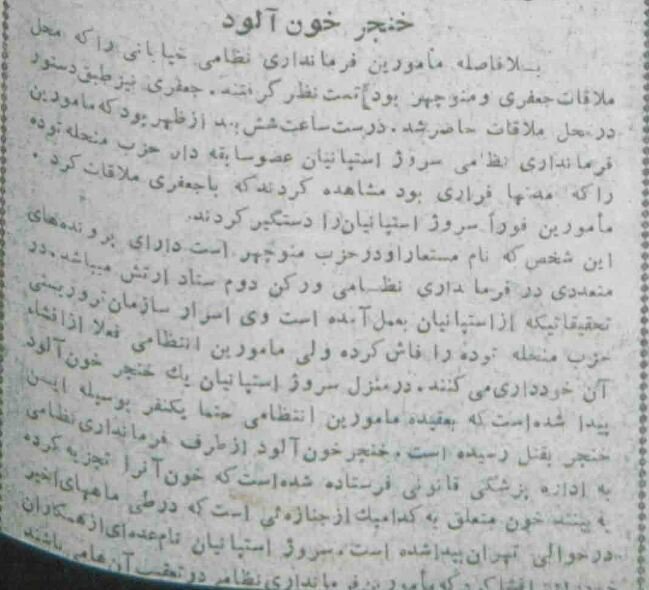 خنجر خون آلود
بلافاصله مأمورین فرمانداری نظامی خیابانی را که محل
ملاقات جعفری و منوچهر بود تحت نظر گرفتند. جعفری نیز طبق دستور
در محل ملاقات حاضر شد. درست ساعت شش بعد از ظهر بود که مامورین
فرمانداری نظامی سروژ استپانیان عضو سابقه دار حزب منحله توده
را که مدتها فراری بود مشاهده کردند که با جعفری ملاقات کرد.
مأمورین فوراً سروژ استپانیان را دستگیر کردند.
این شخص که نام مستعار او در حزب منوچهر است دارای پرونده‌های
متعددی در فرمانداری نظامی و رکن دوم ستاد ارتش میباشد. در
تحقیقاتیکه از استپانیان بعمل آمده است وی اسرار سازمان تروریستی
حزب منحله توده را فاش کرده ولی مامورین انتظامی فعلا از افشاء
آن خودداری می کنند. در منزل سروژ استپانیان یك خنجر خون آلود
پیدا شده است که بعقیده مامورین انتظامی حتما یکنفر بوسیله این
خنجر بقتل رسیده است. خنجر خون آلود از طرف فرمانداری نظامی
به اداره پزشکی قانونی فرستاده شده است که خون آنرا تجزیه کرده
به بینند خون متعلق به کدامیك از جنازه‌ئی است که در طی ماههای اخیر
در حوالی تهران پیدا شده است. سروژ استپانیان نام عده‌ای از همکاران
افشا کرد که مأمورین فرمانداری نظامی در تعقیب آن‌ها می باشند